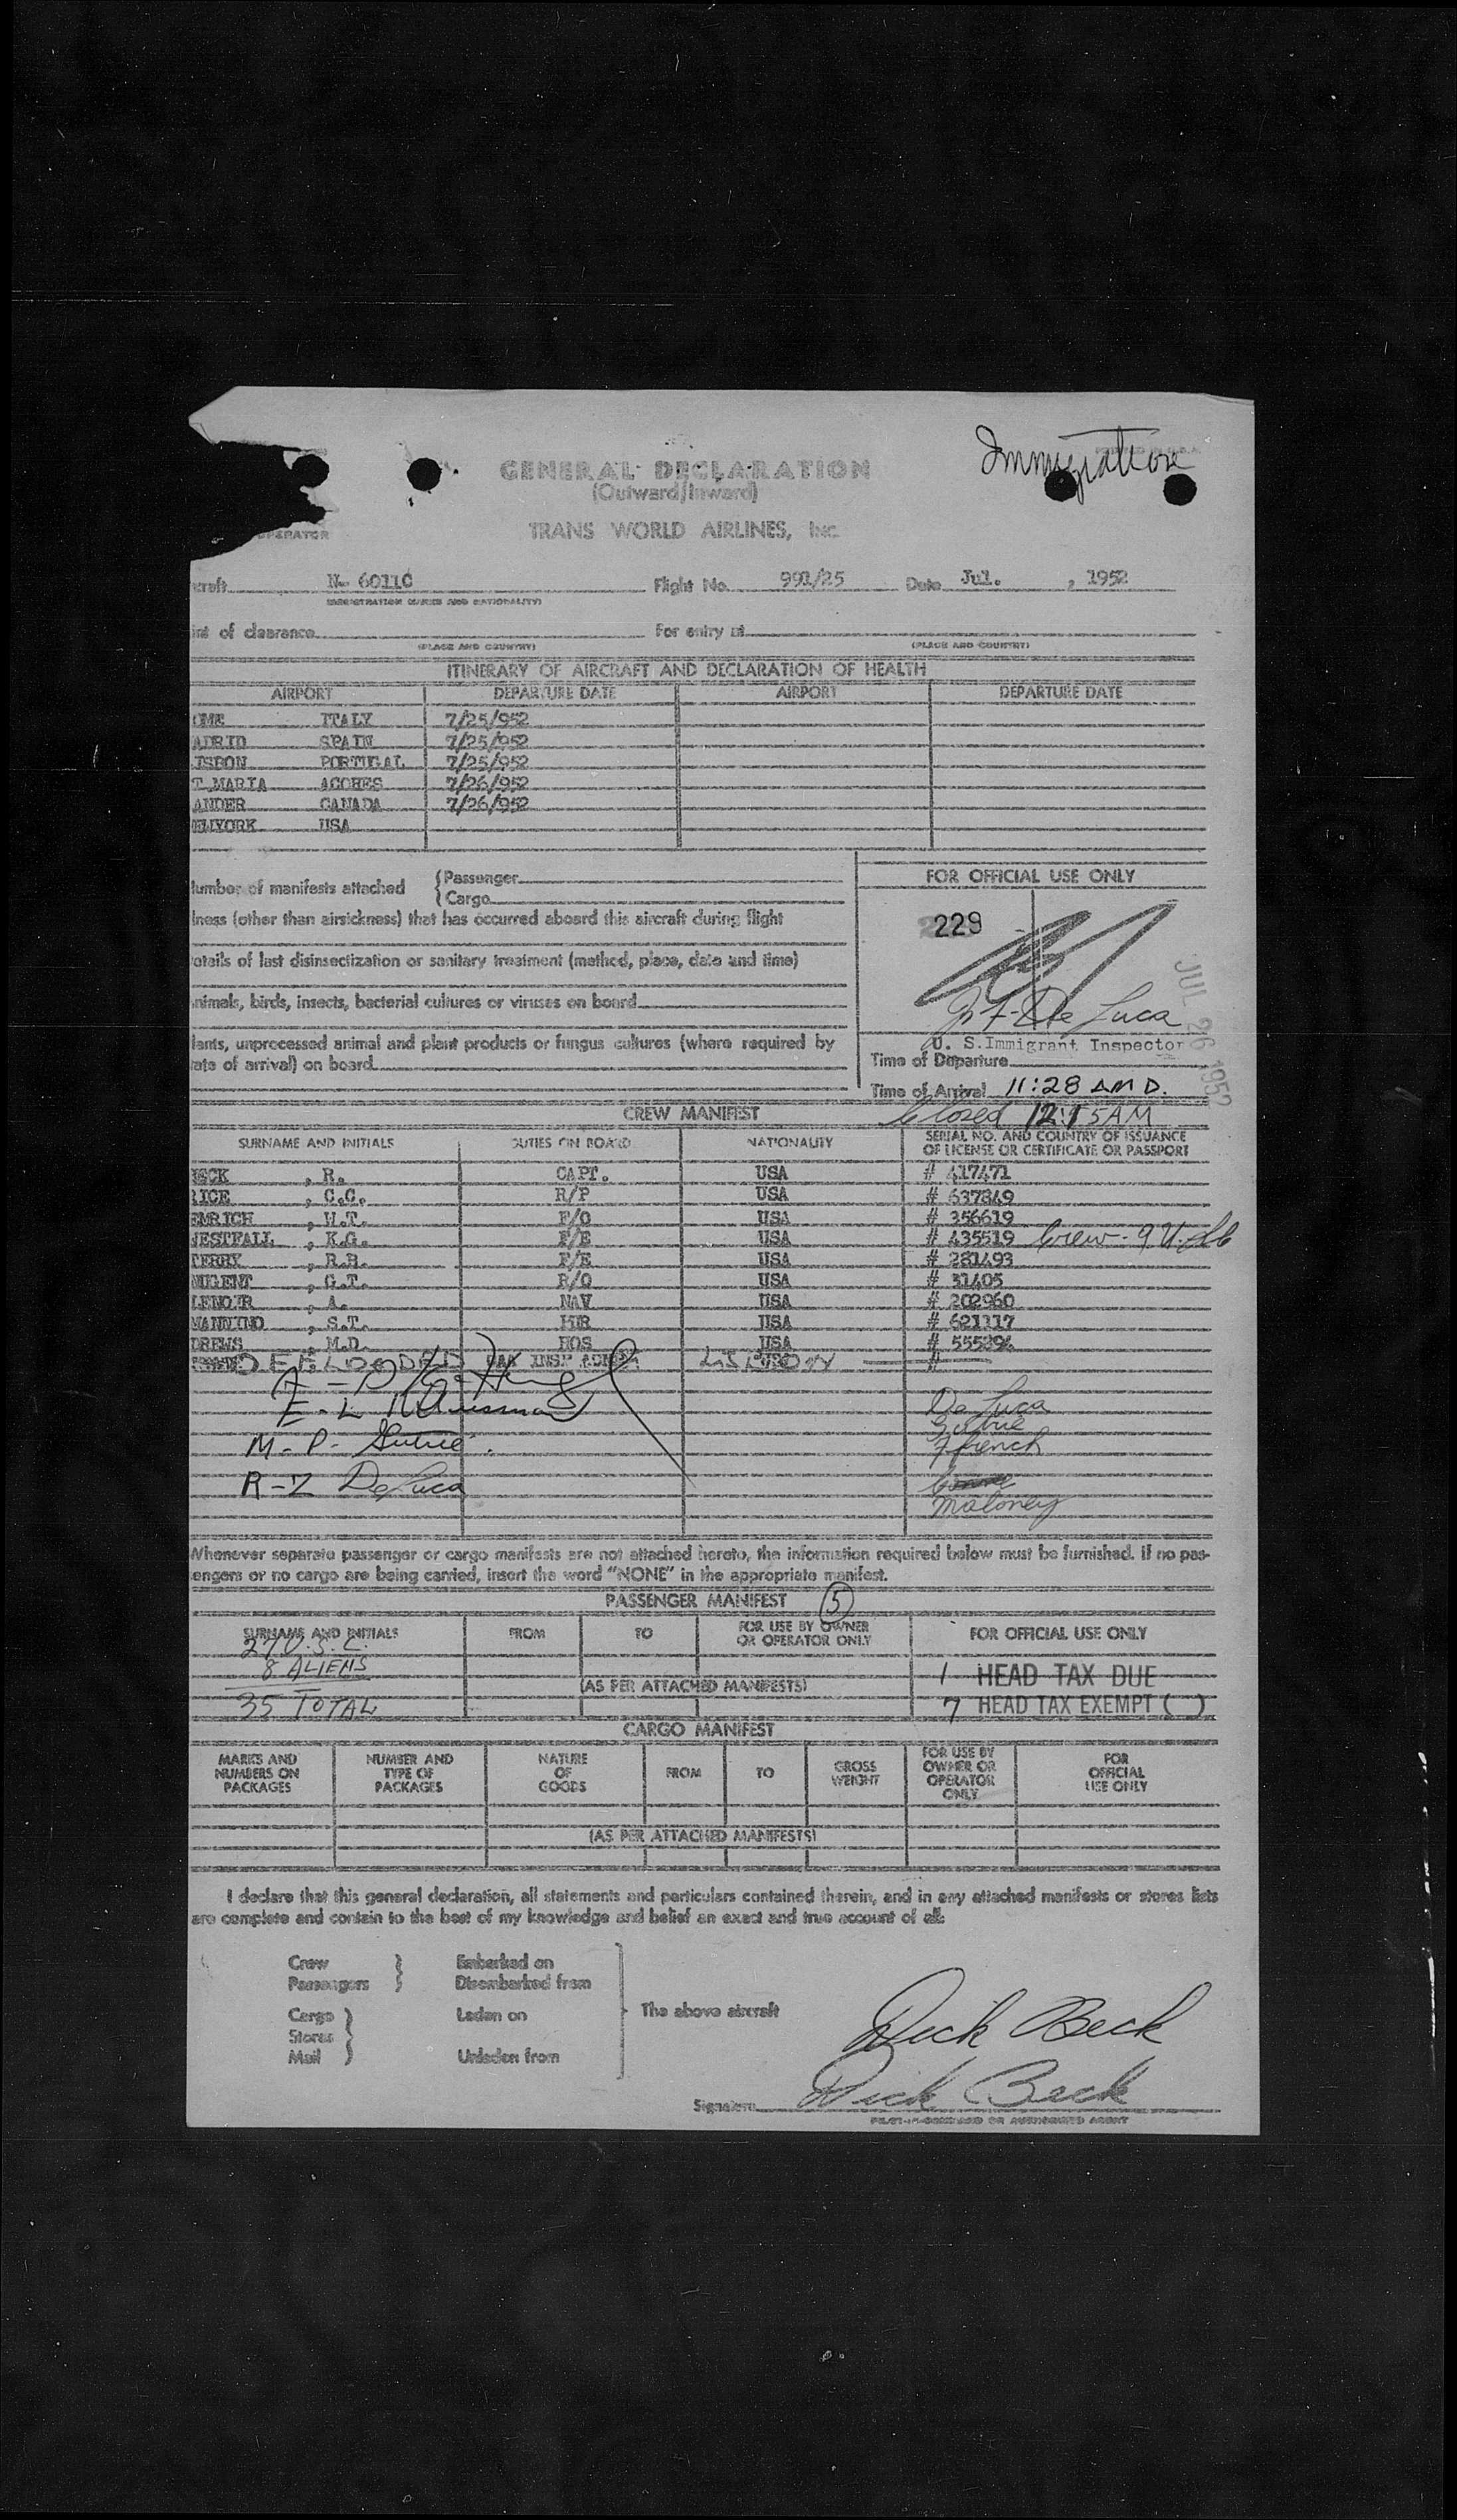 Immigration
GENERAL DECLARATION
(Outward/Inward)
OPERATOR
TRANS WORLD AIRLINES, Inc.
craft N- 6011C Flight No. 991/25 Date Jul. , 1952
(REGISTRATION MARKS AND NATIONALITY)
int of clearance For entry at
(PLACE AND COUNTRY) (PLACE AND COUNTRY)
ITINERARY OF AIRCRAFT AND DECLARATION OF HEALTH
AIRPORT DEPARTURE DATE AIRPORT DEPARTURE DATE
OME ITALY 7/25/952
ADRID SPAIN 7/25/952
ISBON PORTUGAL 7/25/952
T.MARIA ACORES 7/26/952
ANDER CANADA 7/26/952
EWYORK USA
umber of manifests attached { Passenger
{ Cargo
FOR OFFICIAL USE ONLY
lness (other than airsickness) that has occurred aboard this aircraft during flight
229
etails of last disinsectization or sanitary treatment (method, place, date and time)
nimals, birds, insects, bacterial cultures or viruses on board
De Luca
JUL 26 1952
lants, unprocessed animal and plant products or fungus cultures (where required by
ate of arrival) on board
U. S. Immigrant Inspector
Time of Departure
Time of Arrival 11:28 AM D.
Closed 12:15 AM
CREW MANIFEST
SURNAME AND INITIALS DUTIES ON BOARD NATIONALITY SERIAL NO. AND COUNTRY OF ISSUANCE
OF LICENSE OR CERTIFICATE OR PASSPORT
BECK , R. CAPT. USA # 417471
RICE , C.C. R/P USA # 637849
EMRICH , W.T. F/O USA # 356619
WESTFALL , K.G. F/E USA # 435519 Crew - 9
TERRY , R.B. F/E USA # 281493
NUGENT , G.T. R/O USA # 31405
LENOIR , A. NAV USA # 202960
MANNINO , S.T. PUR USA # 621117
DREWS , M.D. HOS USA # 555894
LISBON #
E - L
M - P -
R - Z De Luca
De Luca
French
Maloney
Whenever separate passenger or cargo manifests are not attached hereto, the information required below must be furnished. If no pas-
engers or no cargo are being carried, insert the word "NONE" in the appropriate manifest.
PASSENGER MANIFEST 5
SURNAME AND INITIALS FROM TO FOR USE BY OWNER
OR OPERATOR ONLY FOR OFFICIAL USE ONLY
27 U.S.C.
8 ALIENS
35 TOTAL
(AS PER ATTACHED MANIFESTS)
1 HEAD TAX DUE
7 HEAD TAX EXEMPT ( )
CARGO MANIFEST
MARKS AND
NUMBERS ON
PACKAGES
NUMBER AND
TYPE OF
PACKAGES
NATURE
OF
GOODS
FROM
TO
GROSS
WEIGHT
FOR USE BY
OWNER OR
OPERATOR
ONLY
FOR
OFFICIAL
USE ONLY
(AS PER ATTACHED MANIFESTS)
I declare that this general declaration, all statements and particulars contained therein, and in any attached manifests or stores lists
are complete and contain to the best of my knowledge and belief an exact and true account of all:
Crew Embarked on
Passengers Disembarked from
Cargo Laden on The above aircraft
Stores
Mail Unladen from
Dick Beck
Signature Dick Beck
PILOT-IN-COMMAND OR AUTHORIZED AGENT